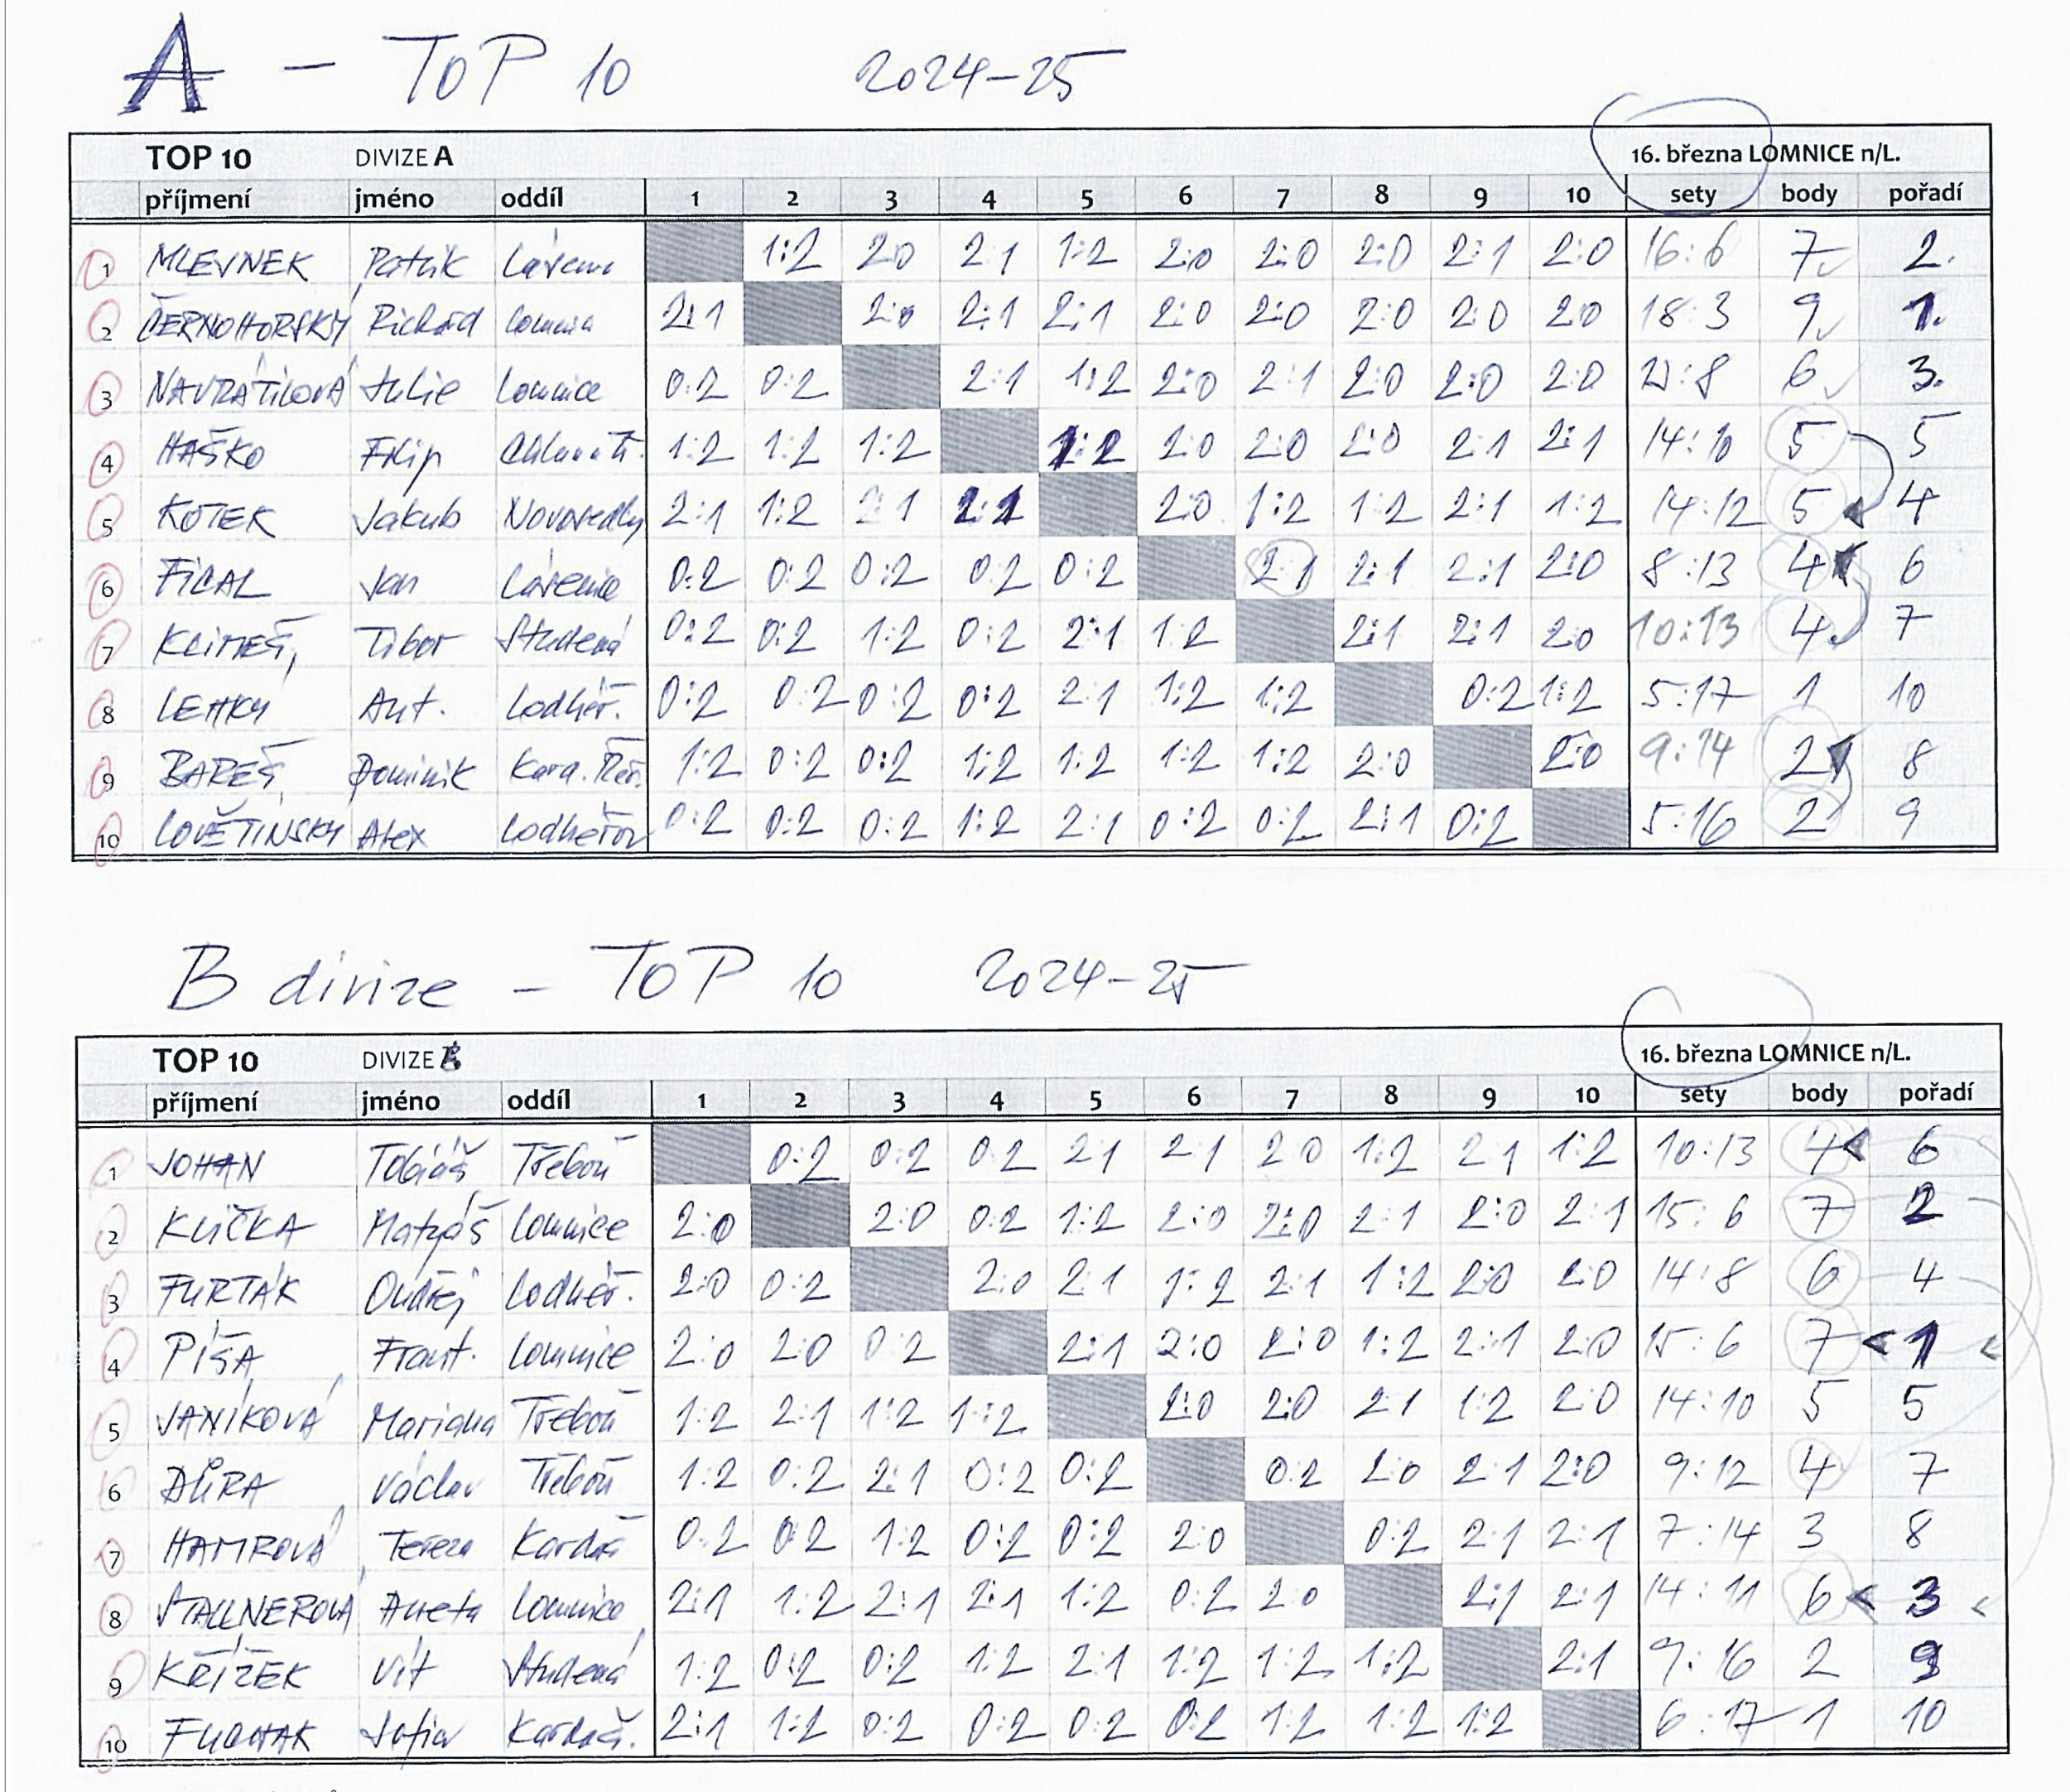 A - TOP 10 2024-25
TOP 10 DIVIZE A 16. března LOMNICE n/L.
příjmení jméno oddíl 1 2 3 4 5 6 7 8 9 10 sety body pořadí
1 MLEVNEK Patrik 1:2 2:0 2:1 1:2 2:0 2:0 2:0 2:1 2:0 16:6 7 2.
2 ČERNOHORSKÝ Richard Lomnice 2:1 2:0 2:1 2:1 2:0 2:0 2:0 2:0 2:0 18:3 9 1.
3 NAVRÁTILOVÁ Julie Lomnice 0:2 0:2 2:1 1:2 2:0 2:1 2:0 2:0 2:0 :8 6 3.
4 HAŠKO Filip 1:2 1:2 1:2 1:2 2:0 2:0 2:0 2:1 2:1 14:10 5 5
5 KOTEK Jakub Novosedly 2:1 1:2 2:1 2:1 2:0 1:2 1:2 2:1 1:2 14:12 5 4
6 FICAL Jan 0:2 0:2 0:2 0:2 0:2 2:1 2:1 2:1 2:0 8:13 4 6
7 KLIMEŠ, Tibor Studená 0:2 0:2 1:2 0:2 2:1 1:2 2:1 2:1 2:0 10:13 4 7
8 LEHKÝ Ant. Lodhéř. 0:2 0:2 0:2 0:2 2:1 1:2 1:2 0:2 1:2 5:17 1 10
9 BAREŠ Dominik Kard. Řeč. 1:2 0:2 0:2 1:2 1:2 1:2 1:2 2:0 2:0 9:14 2 8
10 LOVĚTÍNSKÝ Alex Lodhéřov 0:2 0:2 0:2 1:2 2:1 0:2 0:2 2:1 0:2 5:16 2 9
B divize - TOP 10 2024-25
TOP 10 DIVIZE B 16. března LOMNICE n/L.
příjmení jméno oddíl 1 2 3 4 5 6 7 8 9 10 sety body pořadí
1 JOHAN Tobiáš Třeboň 0:2 0:2 0:2 2:1 2:1 2:0 1:2 2:1 1:2 10:13 4 6
2 KLIČKA Matyáš Lomnice 2:0 2:0 0:2 1:2 2:0 2:0 2:1 2:0 2:1 15:6 7 2
3 FURTÁK Ondřej Lodhéř. 2:0 0:2 2:0 2:1 1:2 2:1 1:2 2:0 2:0 14:8 6 4
4 PÍŠA Frant. Lomnice 2:0 2:0 0:2 2:1 2:0 2:0 1:2 2:1 2:0 15:6 7 1
5 JANÍKOVÁ Mariana Třeboň 1:2 2:1 1:2 1:2 2:0 2:0 2:1 1:2 2:0 14:10 5 5
6 DŮRA Václav Třeboň 1:2 0:2 2:1 0:2 0:2 0:2 2:0 2:1 2:0 9:12 4 7
7 HAMROVÁ Tereza Kardaš 0:2 0:2 1:2 0:2 0:2 2:0 0:2 2:1 2:1 7:14 3 8
8 STALLNEROVÁ Aneta Lomnice 2:1 1:2 2:1 2:1 1:2 0:2 2:0 2:1 2:1 14:11 6 3
9 KŘÍŽEK Vít Studená 1:2 0:2 0:2 1:2 2:1 1:2 1:2 1:2 2:1 9:16 2 9
10 Sofia Kardaš. 2:1 1:2 0:2 0:2 0:2 0:2 1:2 1:2 1:2 6:17 1 10